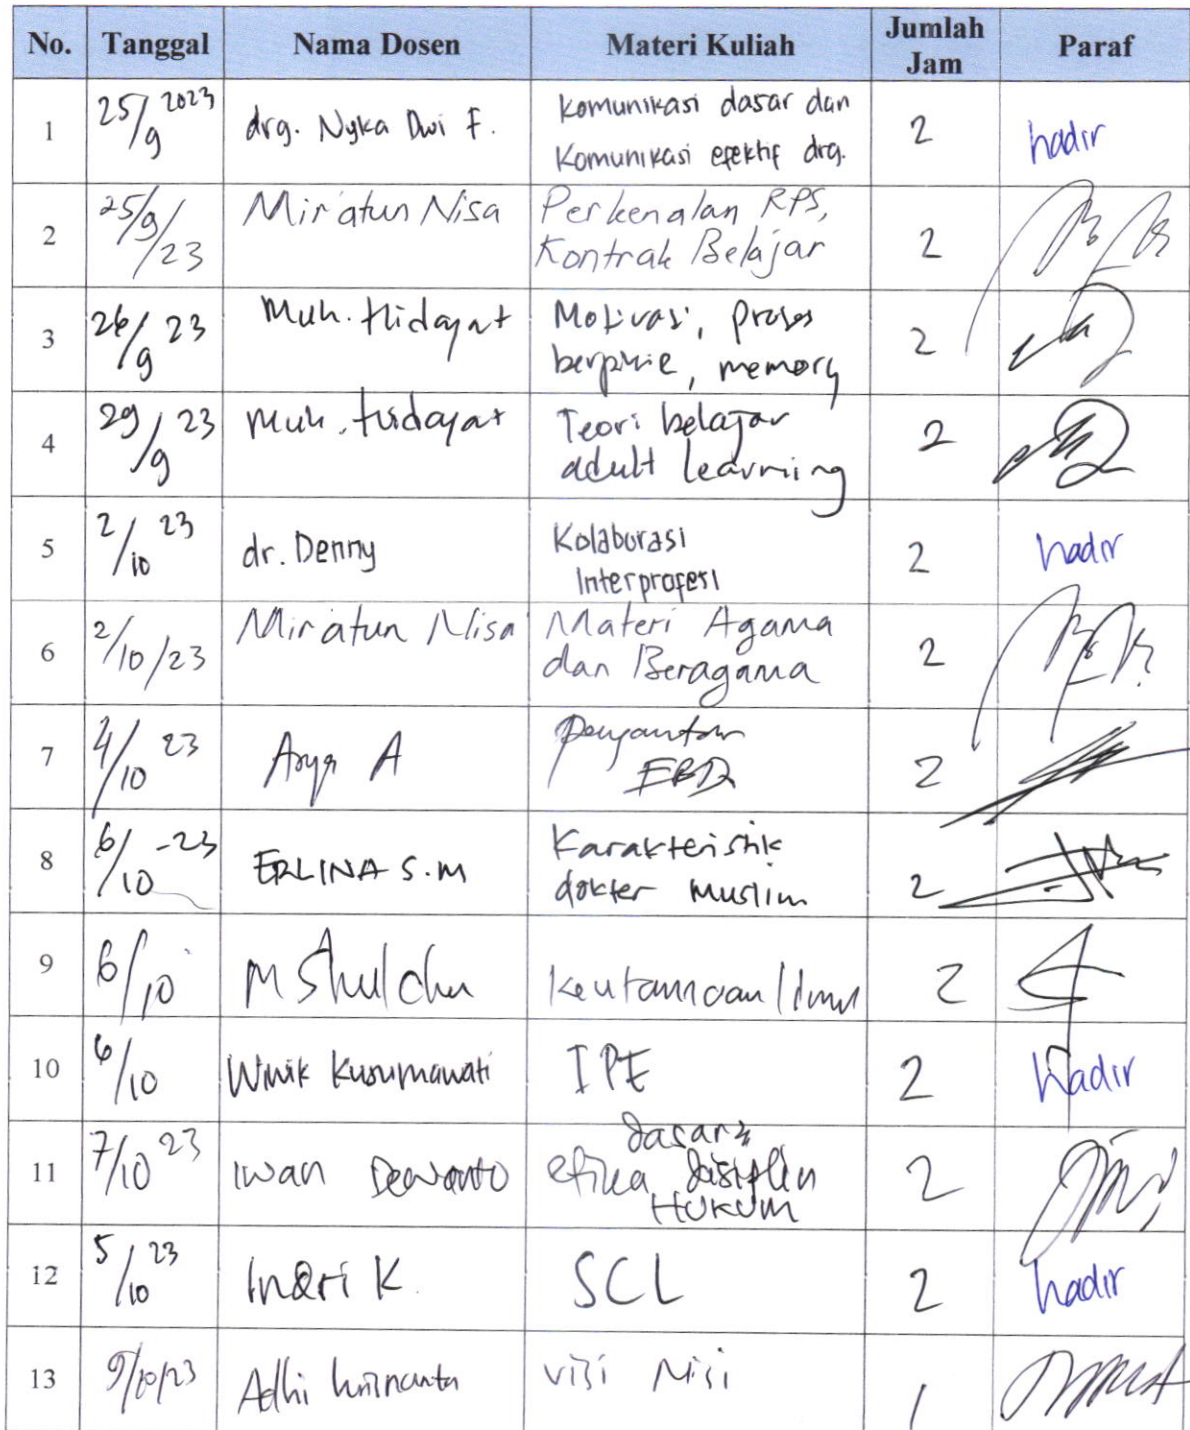 No. Tanggal Nama Dosen Materi Kuliah Jumlah Jam Paraf
1 25/9 2023 drg. Nyka Dwi F. Komunikasi dasar dan 2 hadir
Komunikasi efektif drg.
2 25/9/23 Miratun Nisa Perkenalan RPS, 2
Kontrak Belajar
3 26/9 23 Muh. Hidayat Motivasi, proses 2
berpikir, memory
4 29/9 23 Muh. Hidayat Teori belajar 2
adult learning
5 2/10 23 dr. Denny Kolaborasi 2 hadir
Interprofesi
6 2/10/23 Miratun Nisa Materi Agama 2
dan Beragama
7 4/10 23 Arya A Pengantar 2
8 6/10-23 ERLINA S.M Karakteristik 2
dokter muslim
9 6/10 M 2
10 6/10 Wiwik Kusumawati IPE 2 hadir
11 7/10 23 Iwan Dewanto dasar2 2
etika disiplin
HUKUM
12 5/10 23 Indri K SCL 2 hadir
13 9/10/23 Adhi visi Misi 1